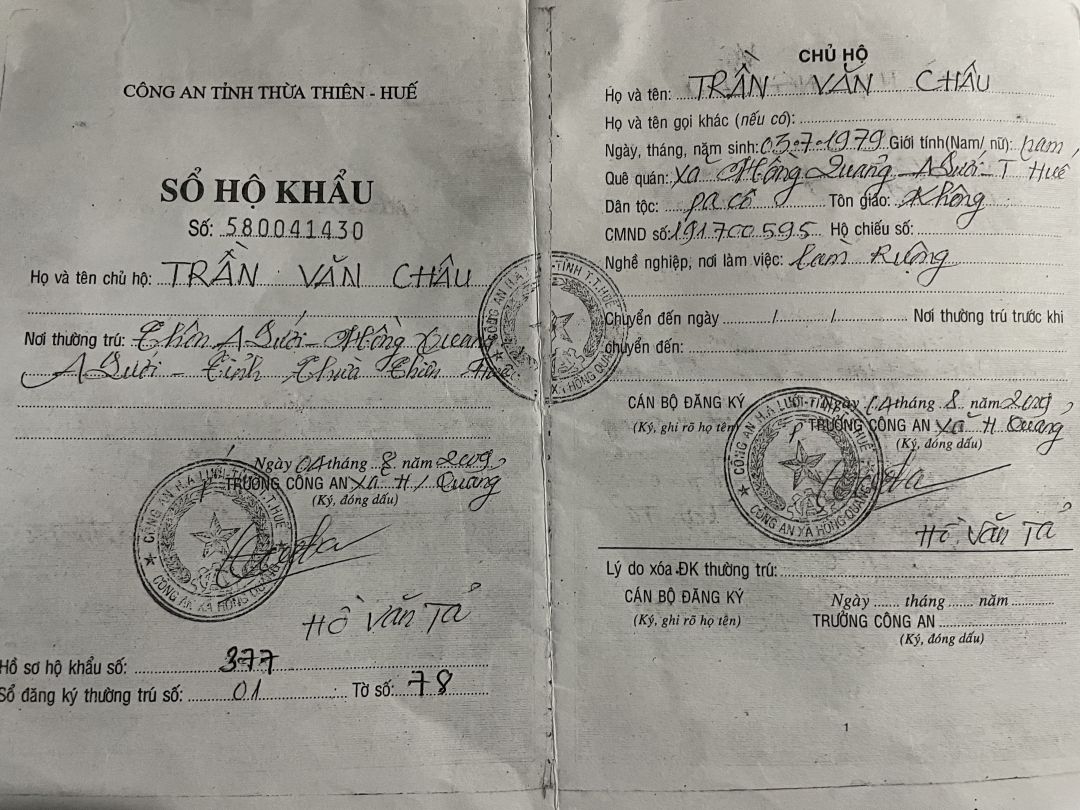 CÔNG AN TỈNH THỪA THIÊN - HUẾ
SỔ HỘ KHẨU
Số: 580041430
Họ và tên chủ hộ: TRẦN VĂN CHÂU
Nơi thường trú: Thôn A Lưới - Hồng Quang
A Lưới - Tỉnh Thừa Thiên Huế
Ngày 04 tháng 8 năm 2009
TRƯỞNG CÔNG AN Xã H. Quang
(Ký, đóng dấu)
CÔNG AN H.A LƯỚI - TỈNH T.T.HUẾ
CÔNG AN XÃ HỒNG QUANG
Hồ Văn Tả
Hồ sơ hộ khẩu số: 377
Sổ đăng ký thường trú số: 01 Tờ số: 78
CHỦ HỘ
Họ và tên: TRẦN VĂN CHÂU
Họ và tên gọi khác (nếu có):
Ngày, tháng, năm sinh: 03.7.1979 Giới tính(Nam/ nữ): nam
Quê quán: Xã Hồng Quảng - A Lưới - T Huế
Dân tộc: pa cô Tôn giáo: Không
CMND số: 191700595 Hộ chiếu số:
Nghề nghiệp, nơi làm việc: Làm Ruộng
Chuyển đến ngày ........../........../.......... Nơi thường trú trước khi
chuyển đến:
CÁN BỘ ĐĂNG KÝ
(Ký, ghi rõ họ tên)
Ngày 04 tháng 8 năm 2009
TRƯỞNG CÔNG AN Xã H Quang
(Ký, đóng dấu)
CÔNG AN H.A LƯỚI - TỈNH T.T.HUẾ
CÔNG AN XÃ HỒNG QUANG
Hồ Văn Tả
Lý do xóa ĐK thường trú:
CÁN BỘ ĐĂNG KÝ
(Ký, ghi rõ họ tên)
Ngày ....... tháng ....... năm ............
TRƯỞNG CÔNG AN
(Ký, đóng dấu)
1